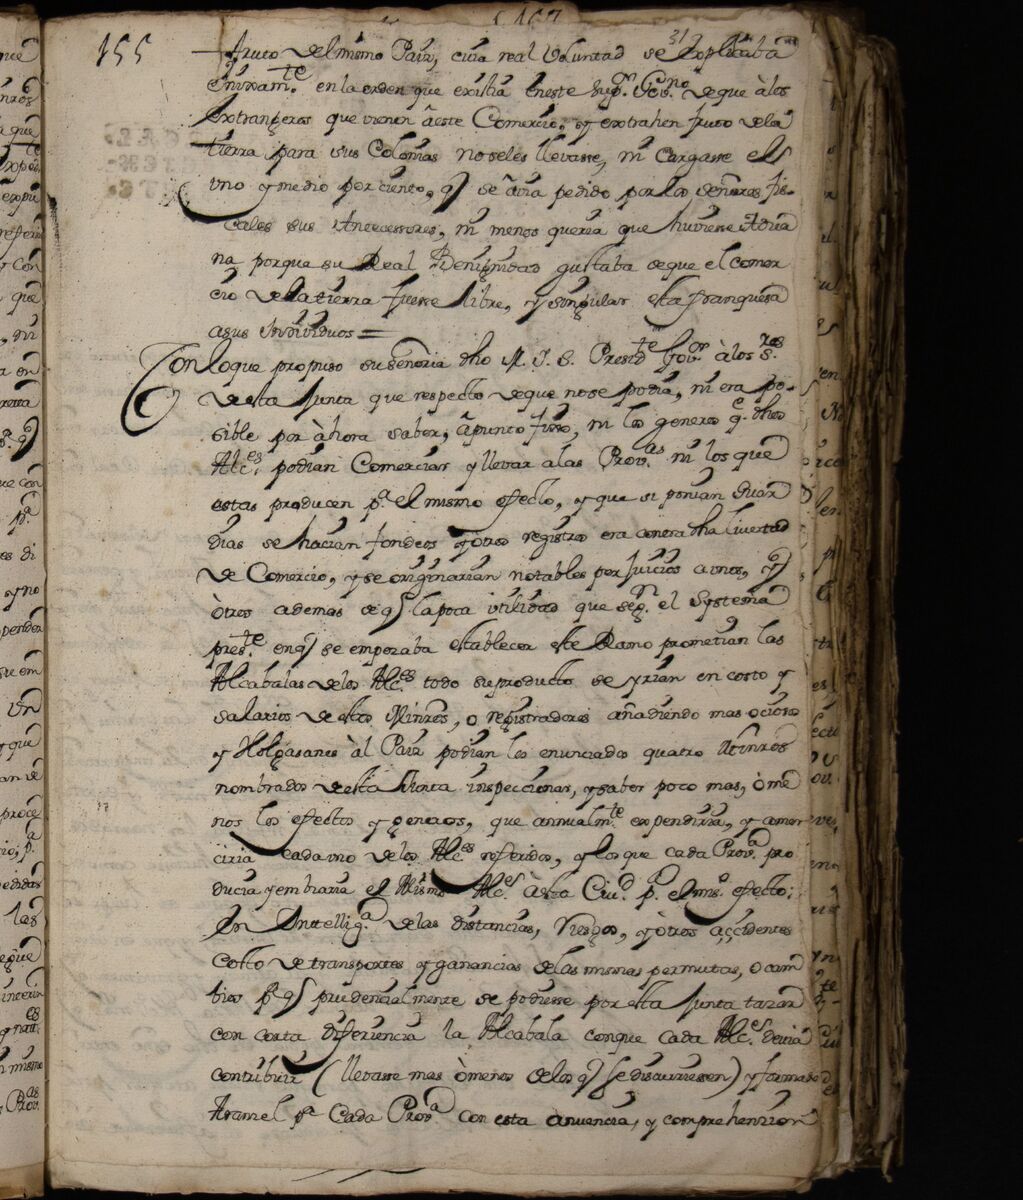 155
fruto del mismo Pais, cuia real Voluntad se explicaba
enteram.te en la orden que existia en este Sup.or Gov.no de que à los
extrangeros que vienen â este Comercio, y extrahen fruto de la
tierra para sus Colonias no seles llevasse, ni cargasse el
uno y medio por ciento, q̃ se avia pedido por los Señores fis-
cales sus Antecessores, ni menos queria que huviesse Adua
na porque su Real Benignidad gustaba de que el comer
cio de la tierra fuesse libre, y singular esta franqueza
a sus individuos =
Con lo que propuso su señoria dho M. I. S. Presid.te Gov.or à los S.res
de esta Junta que respecto de que no se podia, ni era po-
sible por àhora saber, â punto fixo, ni los generos q.e dhos
Alc.es podian Comerciar y llevar a las Prov.as ni los que
estas producen p.a el mismo efecto, y que si ponian Guar
dias se hacian fondeos y otros registros era contra dha livertad
de Comercio, y se originarian notables perjuicios a unos, y
òtros ademas de q̃ la poca utilidad que seg.n el Systema
pres.te en q̃ se emperaba establecer este Ramo prometian las
Alcabalas de los Alc.es todo su producto se yrian en costo y
salarios de estos Minros, o registradores añadiendo mas ociosos
y Holgasanes àl Pais podian los enunciados quatro Minros
nombrados de esta Junta inspeccionar, y saber poco mas, ò me
nos los efectos y generos, que annualm.te expendiria, y comer
ciria cada uno de los Alc.es referidos, y los que cada Prov.a pro
ducia y embiaria el Mismo Alc.e à esta Ciu.d p.a el mis.o efecto;
En Inttellig.a de las distancias, riesgos, y òtros accidentes
Costo de transportes y ganancias de las mismas permutas, o cam
bios p.a q̃ prudencialmente se pudiesse por esta Junta tazar
con corta diferiencia la Alcabala con que cada Alc.e devia
contribuir (llevasse mas ò menos de los q̃ se discurriessen) y formado
Aranzel p.a Cada Prov.a con esta ànuencia, y comprehension